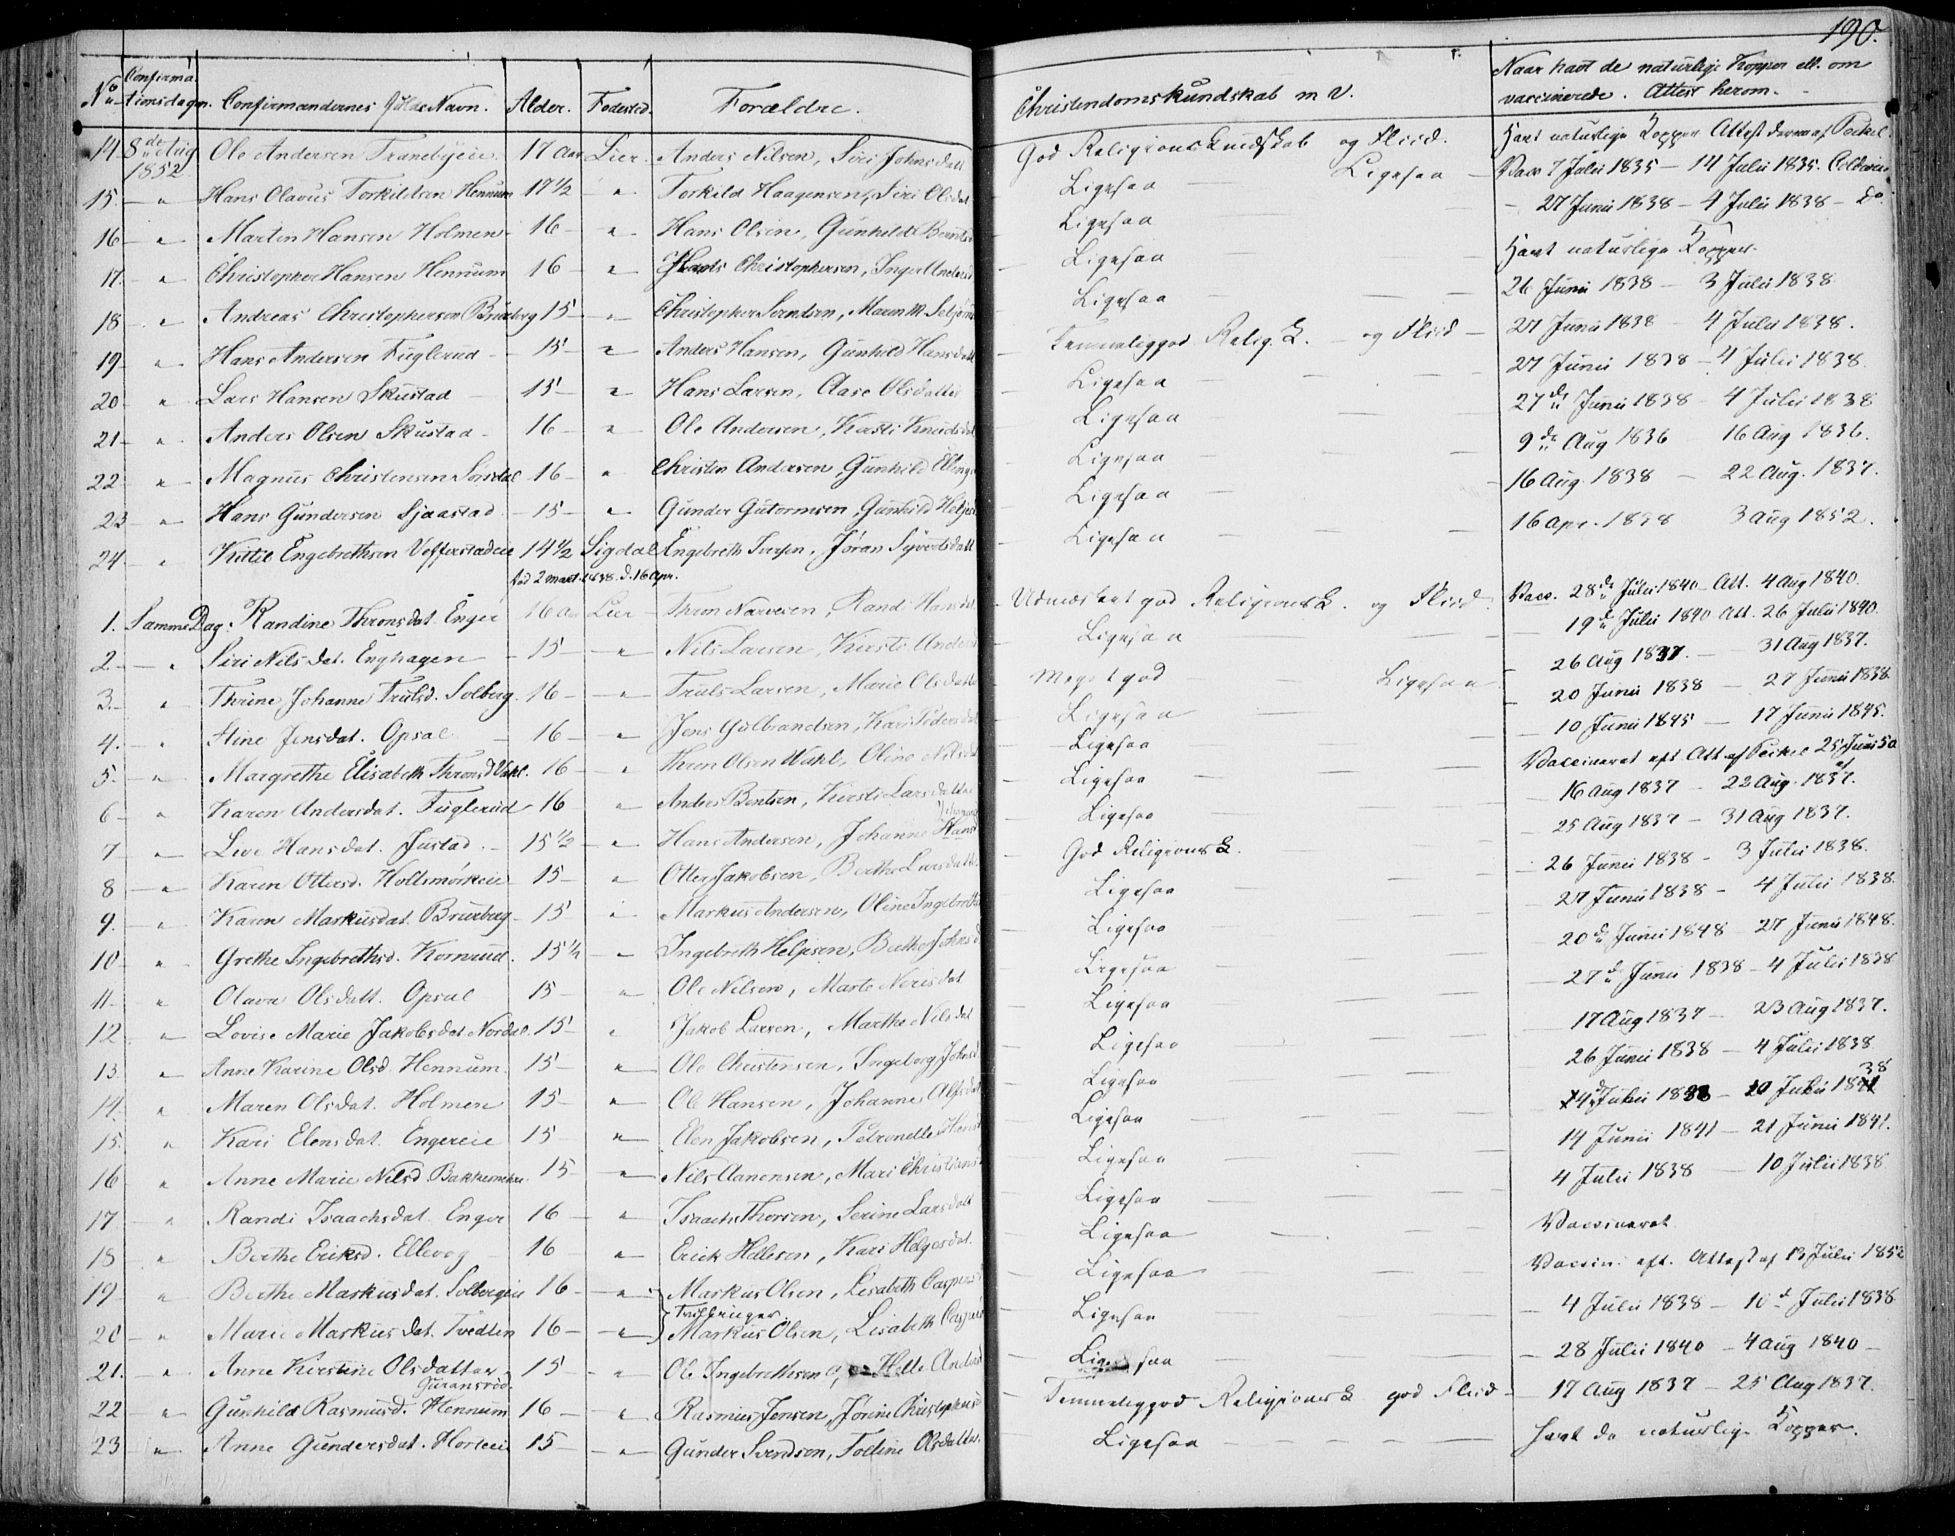 190.
No Confirmationsdagen. Confirmandernes fulde Navn. Alder. Fødested. Forældre. Christendomskundskab m. V. Naar havt de naturlige Kopper ell. om vaccinerede. Attest herom.
14. 8de Aug 1852 Ole Andersen Tranebyeie 17 Aar Lier. Anders Nilsen, Siri Johnsdatt God Religions Kundskab og Fliid. Havt naturlige Kopper Attest derom af
15. " Hans Olavus Torkildsen Hennum 17½ " Torkild Haagensen, Siri Olsdat Ligesaa Ligesaa Vacc 7 Julii 1835 – 14 Julii 1835.
16 " Martin Hansen Holmen 16 " Hans Olsen, Gunhild Ligesaa 27 Junii 1838 – 4 Julii 1838 – do.
17. " Christopher Hansen Hennum 16 " Hans Christophersen, Inger Ligesaa Havt naturlige Kopper.
18 " Andreas Christophersen Bruxberg 15 " Christopher Svendsen, Maren M. Ligesaa 26 Junii 1838 – 3 Julii 1838
19 " Hans Andersen Fuglerud 15 " Anders Hansen, Gunhild Hansdatt Temmelig god Relig. K. og Fliid 27 Junii 1838 – 4 Julii 1838.
20 " Lars Hansen Skustad 15 " Hans Larsen, Aase Olsdatter Ligesaa 27 Junii 1838 – 4 Julii 1838.
21 " Anders Olsen Skustad 16 " Ole Andersen, Kersti Knudsdat Ligesaa 27de Junii 1838 – 4 Julii 1838
22 " Magnus Christensen Sørsdal 16 " Christen Andersen, Gunhild Ligesaa 9de Aug 1836 16 Aug 1836.
23 " Hans Gundersen Sjaastad 15 " Gunder Gutormsen, Gunhild Ligesaa 16 Aug. 1838 – 22 Aug. 1837.
24 " Kittil Engebrethsen 14½ Sigdal Engebreth Iversen, Jøran Syvertsdatt Ligesaa 16 Apr. 1838 3 Aug 1852.
fød 2 Mart. 1838. d. 16 Apr.
1. Samme Dag. Randine Thronsdat. Enger 16 Aar Lier Thron Narvesen, Randi Hansdat Udmærket god Religions K. og Fliid. Vacc. 28de Julii 1840 – Att. 4 Aug 1840.
2. " Siri Nilsdat. Enghagen 15 " Nils Larsen, Kersti Ligesaa 19de Julii 1840 Att. 26 Julii 1840
3. " Thrine Johanne Trulsd. Solberg. 16 " Truls Larsen, Marie Olsdatt Meget god Ligesaa 26 Aug 1837. – 31 Aug 1837.
4. " Stine Jensdat. Opsal 16 " Jens Gulbrandsen, Kari Pedersdat Ligesaa 20 Junii 1838 – 27 Junii 1838
5. " Margrethe Elisabeth Thronsd Wahl. 16 " Thron Olsen Wahl, Oline Nilsdat Ligesaa 10 Junii 1845 – 17 Junii 1845.
6 " Karen Andersdat. Fuglerud 16 " Anders Bentsen, Kersti Larsdatter Ligesaa Vaccineret eft. Att. af 25 Juni 50
7 " Live Hansdat. Justad. 15½ " Hans Andersen, Johanne Hans Ligesaa 16 Aug 1837 – 22 Aug. 1837.
8 " Karen Ottersd. Holtsmørkeie 15 " Otter Jakobsen, Berthe Larsdatt God Religions K. 25 Aug 1837 – 31 Aug 1837.
9. " Karen Markusdat. Bruxberg 15 " Markus Andersen, Oline Ingebreths Ligesaa 26 Junii 1838 – 3 Julii 1838.
10 " Grethe Ingebrethsd. Kornrud. 15½ " Ingebreth Helgesen, Berthe Johnsd Ligesaa 27 Junii 1838 – 4 Julii 1838.
11 " Olava Olsdatt. Opsal 15 " Ole Nilsen, Marte Nerisdat Ligesaa 20de Junii 1848 – 27 Junii 1848.
12 " Lovise Marie Jakobsdat Nordal. 15 " Jakob Larsen, Marthe Nilsdat Ligesaa 27de Junii 1838 – 4 Julii 1838
13. " Anne Karine Olsd. Hennum. 15 " Ole Christensen, Ingeborg Johnsd. Ligesaa 17 Aug 1837 – 23 Aug 1837.
14. " Maren Olsdat. Holmen 15 " Ole Hansen, Johanne Ligesaa 26 Junii 1838 – 4 Julii 1838
15. " Kari Elensdat. Engereie 15 " Elen Jakobsen, Petronelle Hans Ligesaa 4de Julii 1838 – 10 Julii 1838
16 " Anne Marie Nilsd 15 " Nils Aanensen, Mari Christians Ligesaa 14 Junii 1841 – 21 Junii 1841.
17 " Randi Isaachsdat. Enger 16 " Isaach Thorsen, Serine Larsdatt Ligesaa 4 Julii 1838 – 10 Julii 1838
18 " Berthe Eriksd. Ellevog 16 " Erick Hellesen, Kari Helgesdat. Ligesaa Vaccineret
19 " Berthe Markusdat. Solbergeie 16 " Markus Olsen, Lisabeth Caspers Ligesaa Vaccin. eft. Attest af 13 Julii 1852
Tvillinger.
20 " Marie Markusdat. Tvedten 16 " Markus Olsen, Lisabeth Caspers Ligesaa 4 Julii 1838 – 10de Julii 1838
21. " Anne Kirstine Olsdatter 15 " Ole Ingebrethsen, Helle Ligesaa 28 Julii 1840 – 4 Aug 1840
22 " Gunhild Rasmusd. Hennum 16 " Rasmus Jensen, Jonine Christophersd Temmelig god Religions K god Fliid 17 Aug 1837 – 25 Aug 1837.
23 " Anne Gundersdat. Horteie 15 " Gunder Svendsen, Tolline Olsdatter. Ligesaa Havt de naturlige Kopper.